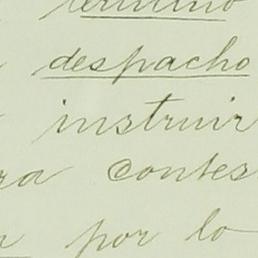 termino
despacho
instruir
ra contes
por lo